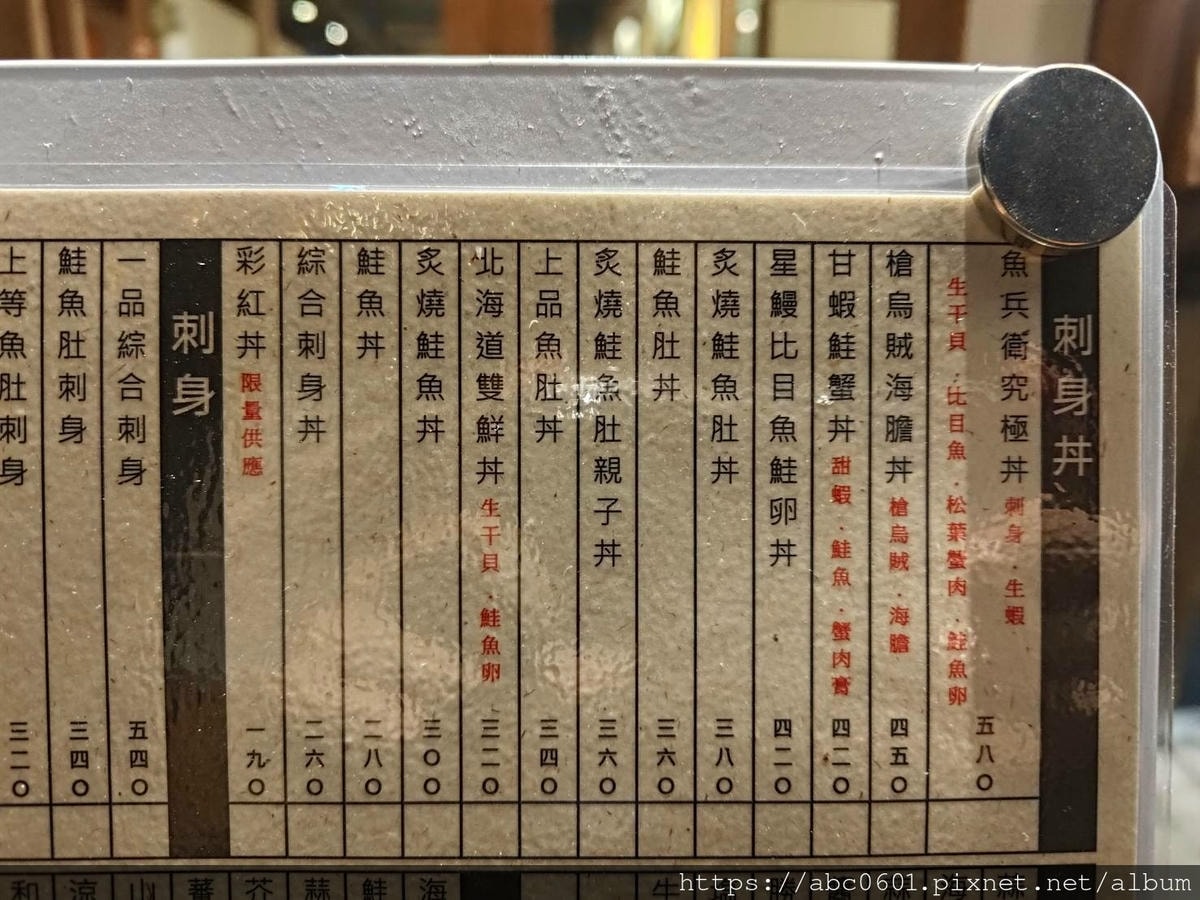 刺身丼
魚兵衛究極丼 刺身．生蝦
生干貝．比目魚．松葉蟹肉．鮭魚卵
五八〇
槍烏賊海膽丼 槍烏賊．海膽 四五〇
甘蝦鮭蟹丼 甜蝦．鮭魚．蟹肉膏 四二〇
星鰻比目魚鮭卵丼 四二〇
炙燒鮭魚肚丼 三八〇
鮭魚肚丼 三六〇
炙燒鮭魚肚親子丼 三六〇
上品魚肚丼 三四〇
北海道雙鮮丼 生干貝．鮭魚卵 三二〇
炙燒鮭魚丼 三〇〇
鮭魚丼 二八〇
綜合刺身丼 二六〇
彩紅丼 限量供應 一九〇
刺身
一品綜合刺身 五四〇
鮭魚肚刺身 三四〇
上等魚肚刺身 三二〇
海
鮭
蒜
芥
蕃
山
涼
和
https://abc0601.pixnet.net/album